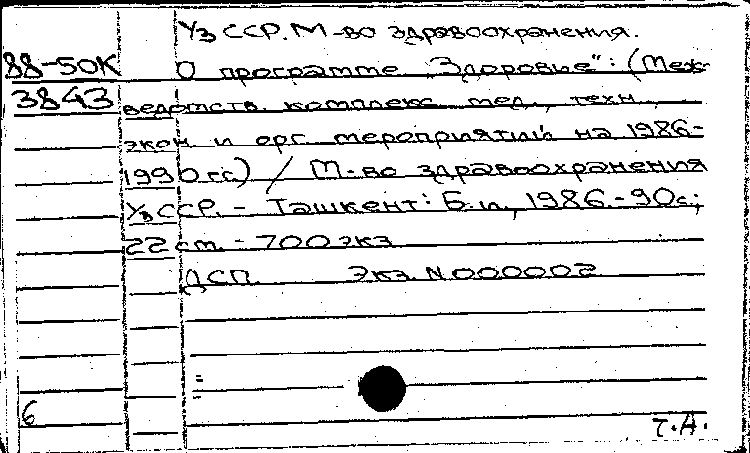 Уз ССР. М-во здравоохранения.
88-50К О программе „Здоровие": (Меж-
3843 ведомств. комплекс мед., техн.,
экон. и орг. мероприятий на 1986-
1990 гг.) / М-во здравоохранения
Уз ССР. - Ташкент: Б.и., 1986.-90с;
22 см. - 700 экз
ДСП. Экз. N000002
6
Т.А.